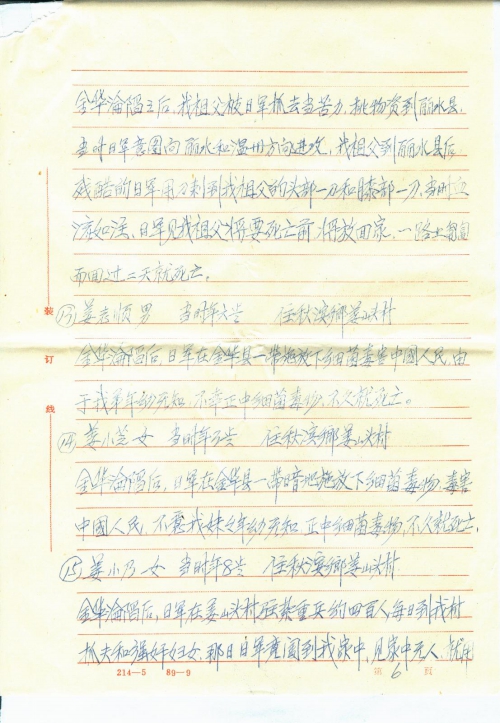 金华沦陷之后,我祖父被日军抓去当苦力,挑物资到丽水县,
当时日军意图向丽水和温州方向进攻,我祖父到丽水县后
残酷的日军用刀刺到我祖父的头部一刀和膝部一刀,当时血
流如注,日军见我祖父将要死亡前将放回家,一路上
而回过二天就死亡。
⑬姜志顺 男 当时年 岁 住秋滨乡姜山头村
金华沦陷后,日军在金华县一带施放下细菌毒害中国人民,由
于我弟年幼无知,不幸正中细菌毒物,不久就死亡。
⑭姜小芝 女 当时年 岁 住秋滨乡姜山头村
金华沦陷后,日军在金华县一带暗地施放下细菌毒物,毒害
中国人民,不愿我妹年幼无知 正中细菌毒物,不久就死亡,
⑮姜小乃 女 当时年8岁 住秋滨乡姜山头村
金华沦陷后,日军在姜山头村驻扎重兵约四百人,每日到我村
抓夫和强奸妇女,那日日军竟闯到我家中,见家中无人,就用
装
订
线
214—5 89—9
第6页